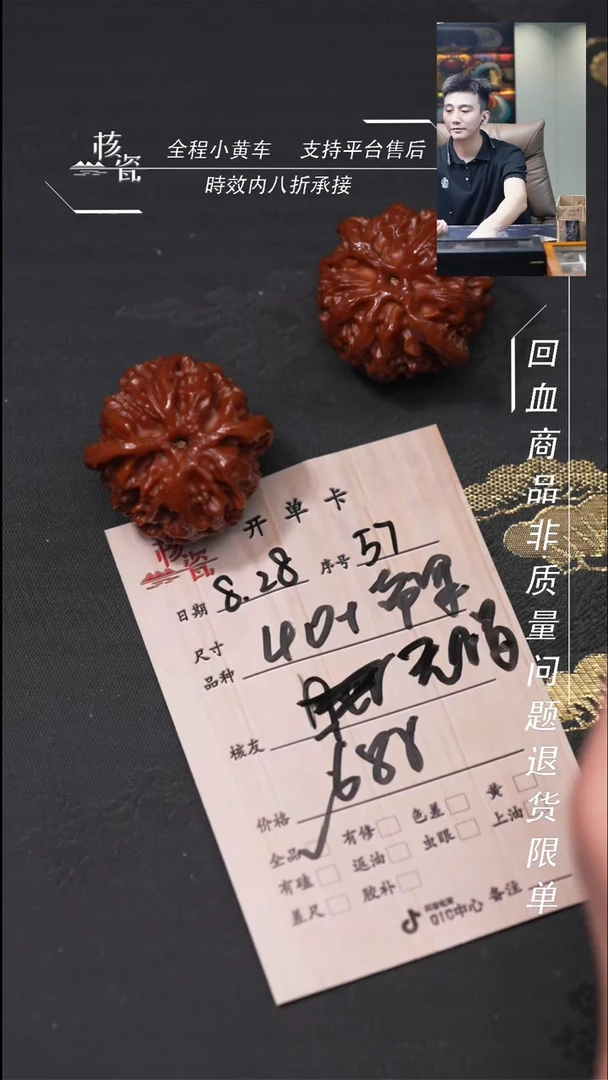 核瓷
全程小黄车 支持平台售后
時效内八折承接
回血商品非质量问题退货限单
开单卡
核瓷
日期 8.28 序号 57
尺寸 40+
品种
核友
价格 688
全品 有修 色差 黄
有磕 返油 虫眼 上油
差尺 胶补
抖音电商
QIC中心 备注